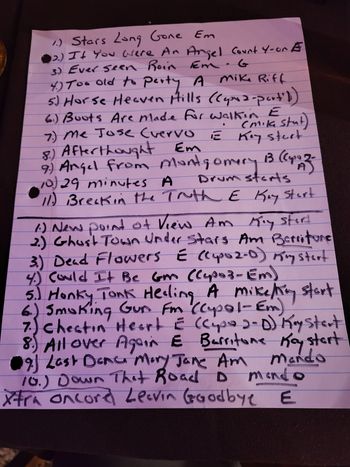 1.) Stars Long Gone Em
2) If You Were An Angel Count 4-on E
3) Ever seen Rain Em - G
4) Too old to Party A Mike Riff
5) Horse Heaven Hills
6) Boots Are Made For Walkin E
(mike start)
7) Me Jose Cuervo E Kay start
8) Afterthought Em
9) Angel From Montgomery B (Cypo2-A)
10) 29 minutes A Drum starts
11) Breakin the Truth E Kay Start
1.) New point of View Am Kay start
2.) Ghost Town Under Stars Am Barritone
3) Dead Flowers E (Cypo2-D) Kay start
4.) Could It Be Gm (Cypo3-Em)
5.) Honky Tonk Healing A mike/Kay start
6.) Smoking Gun Fm (Cypo1-Em)
7.) Cheatin Heart E (Cypo2-D) Kay Start
8.) All over Again E Barritone Kay start
9.) Last Dance Mary Jane Am Mando
10.) Down That Road D mando
Xtra oncore) Leavin Goodbye E